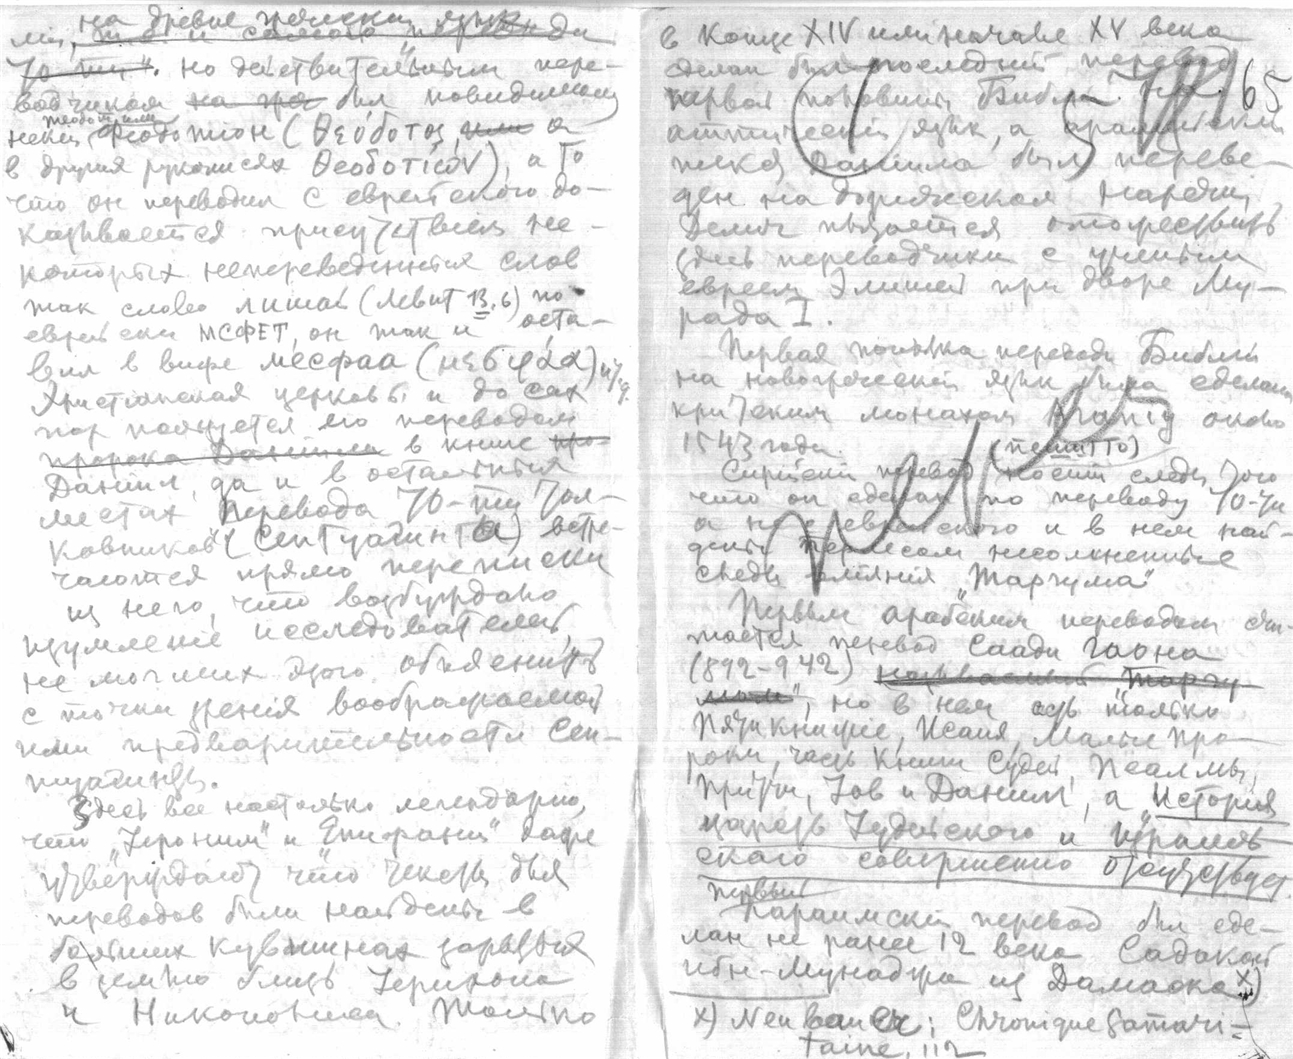 на древне греческий язык
ми,
70-ти". но действительным пере-
водчиком был повидимому
теодот или
некий Феодотион (Θεόδοτος, или а
в других рукописях Θεοδοτίων), а то
что он переводил с еврейского до-
казывается присутствием не-
которых непереведенных слов
так слово лишай (Левит 13,6) по
еврейски МСФЕТ, он так и оста-
вил в виде месфаа (μεσφάα) и т.д.
Христианская церковь и до сих
пор пользуется его переводом
пророка Даниила в книге про-
Даниил, да и в остальных
местах Перевода 70-ти Тол-
ковников" (Септуагинта) встре-
чаются прямо переписки
из него, что возбуждало
изумление исследователей,
не могших этого объяснить
с точки зрения воображаемой
ими предварительности Сеп-
туагинты.
Здесь все настолько легендарно,
что "Иероним" и "Епифаний" даже
утверждают что чексты двух
переводов были найдены в
больших кувшинах зарытых
в землю близь Иерихона
и Никополиса. Только
в конце XIV или начале XV века
165
сделан был последний перевод
первой половины Библии на
аттический язык, а арамейский
текст Даниила был переве-
ден на дорическое наречие,
Делич пытается отождествить
здесь переводчика с ученым
евреем Элишей при дворе Му-
рада I.
Первая попытка перевода Библии
на новогреческий язык была сделана
критским монахом около
1543 года.
(пешитто)
Сирийский перевод носит следы того
что он сделан по переводу 70-ти
а не с еврейского и в нем най-
дены Перлесом несомненные
следы влияния "Таргума"
Первым арабским переводом счи-
тается перевод Саади Гаона
(892-942) называемый Таргу
мом", но в нем есть только
Пятикнижие, Исаия, Малые про-
роки, часть Книги Судей, Псалмы,
Притчи, Иов и Даниил, а История
царей Иудейского и Израиль
ского совершенно отсутствует.
первый
Караимский перевод был сде-
лан не ранее 12 века Садакой
ибн-Мунаджа из Дамаска x)
x) Neubauer: Chronique Samari-
taine, 112